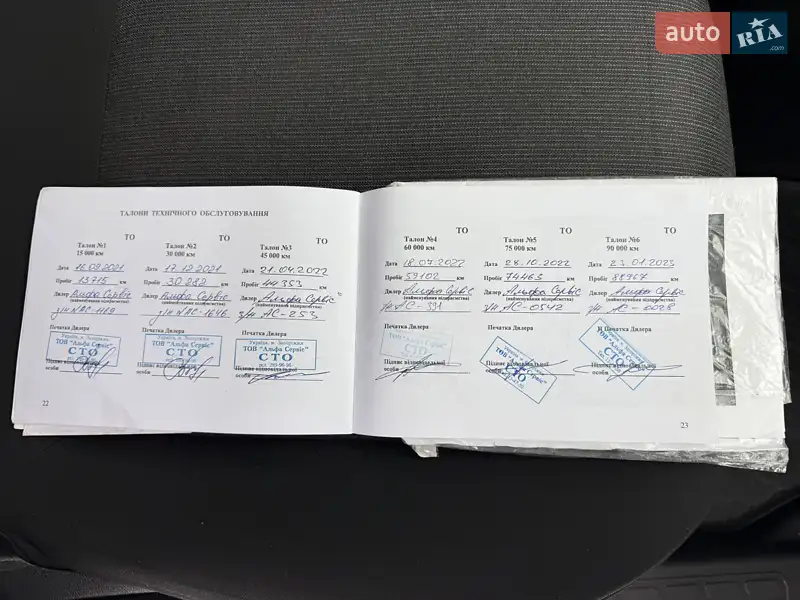 auto RIA .com
ТАЛОНИ ТЕХНІЧНОГО ОБСЛУГОВУВАННЯ
ТО
Талон №1
15 000 км
Дата 16.09.2021
Пробіг 13715 км
Дилер Альфа Сервіс
(найменування підприємства)
Печатка Дилера
Україна, м. Запоріжжя
ТОВ "Альфа Сервіс"
СТО
Підпис відповідальної
особи
22
ТО
Талон №2
30 000 км
Дата 17.12.2021
Пробіг 30282 км
Дилер Альфа Сервіс
(найменування підприємства)
з/н №АС-1646
Печатка Дилера
Україна, м. Запоріжжя
ТОВ "Альфа Сервіс"
СТО
Підпис відповідальної
особи
ТО
Талон №3
45 000 км
Дата 21.04.2022
Пробіг 44353 км
Дилер „Альфа Сервіс"
(найменування підприємства)
з/н АС-253
Печатка Дилера
Україна, м. Запоріжжя
ТОВ "Альфа Сервіс"
СТО
Підпис відповідальної
особи
ТО
Талон №4
60 000 км
Дата 18.07.2022
Пробіг 59102 км
Дилер Альфа Сервіс
(найменування підприємства)
з/н АС-391
Печатка Дилера
Підпис відповідальної
особи
ТО
Талон №5
75 000 км
Дата 28.10.2022
Пробіг 74463 км
Дилер Альфа Сервіс
(найменування підприємства)
з/н АС-0542
Печатка Дилера
СТО
Підпис відповідальної
особи
ТО
Талон №6
90 000 км
Дата 23.01.2023
Пробіг 88967 км
Дилер Альфа Сервіс
(найменування підприємства)
з/н АС-0028
Печатка Дилера
СТО
Підпис відповідальної
особи
23